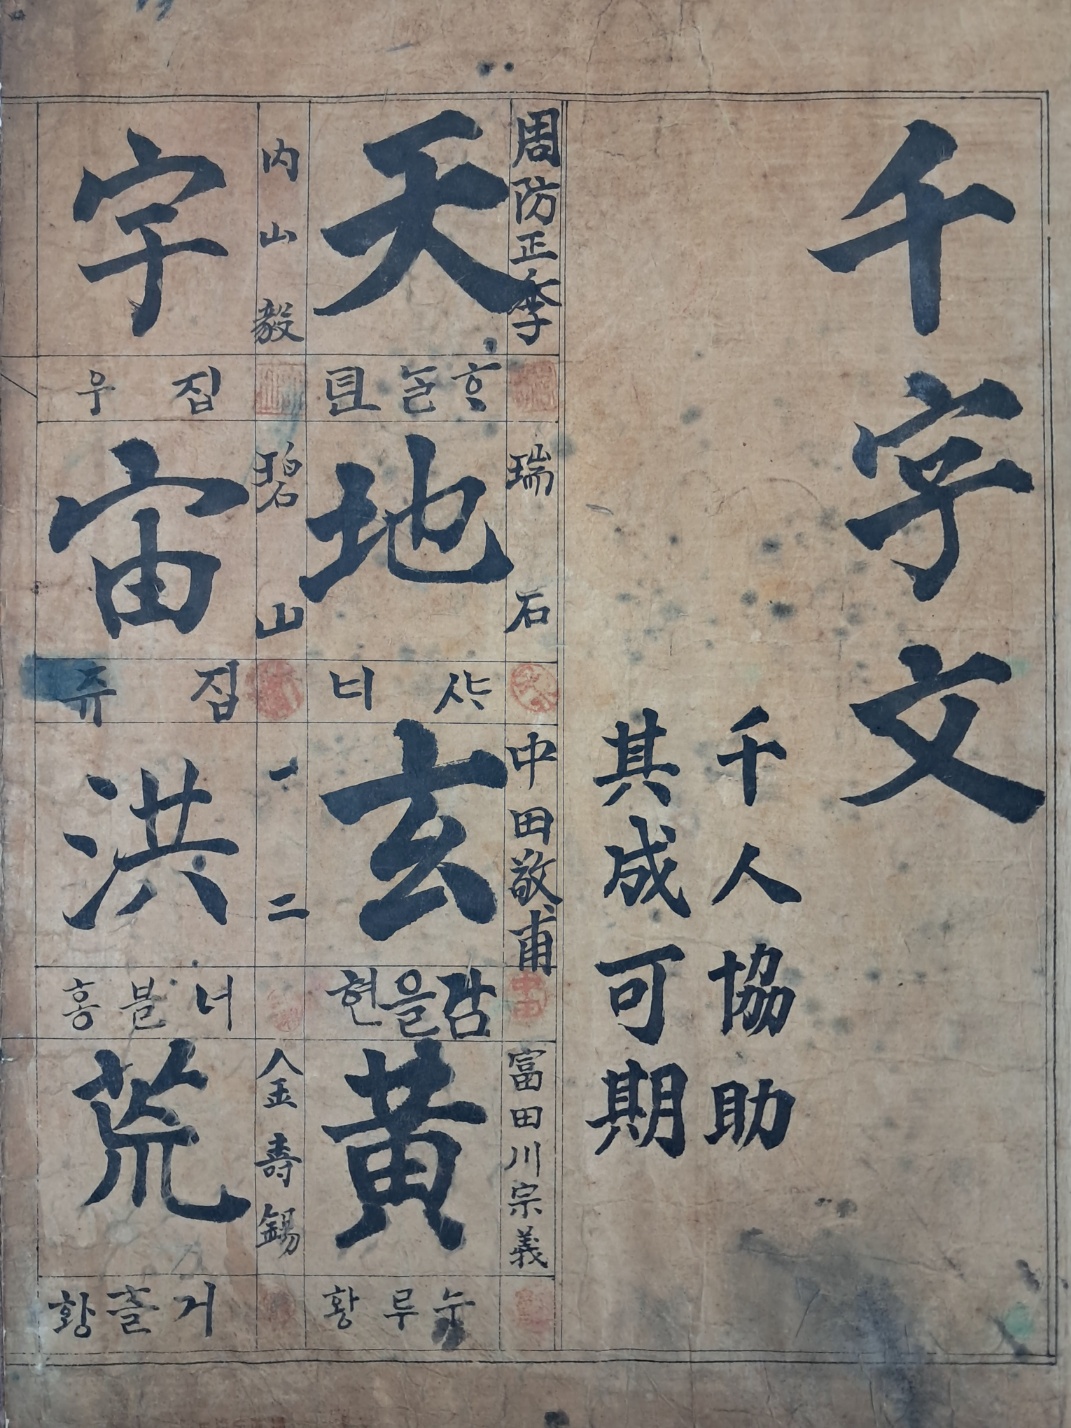 千字文
千人協助
其成可期
周防正季
瑞石
中田敬甫
富田川宗義
天
ᄒᆞᄂᆞᆯ텬
地
玄
감을현
黃
황
內山毅
碧山
一二
金壽錫
宇
집우
宙
집쥬
洪
너블홍
荒
거츨황